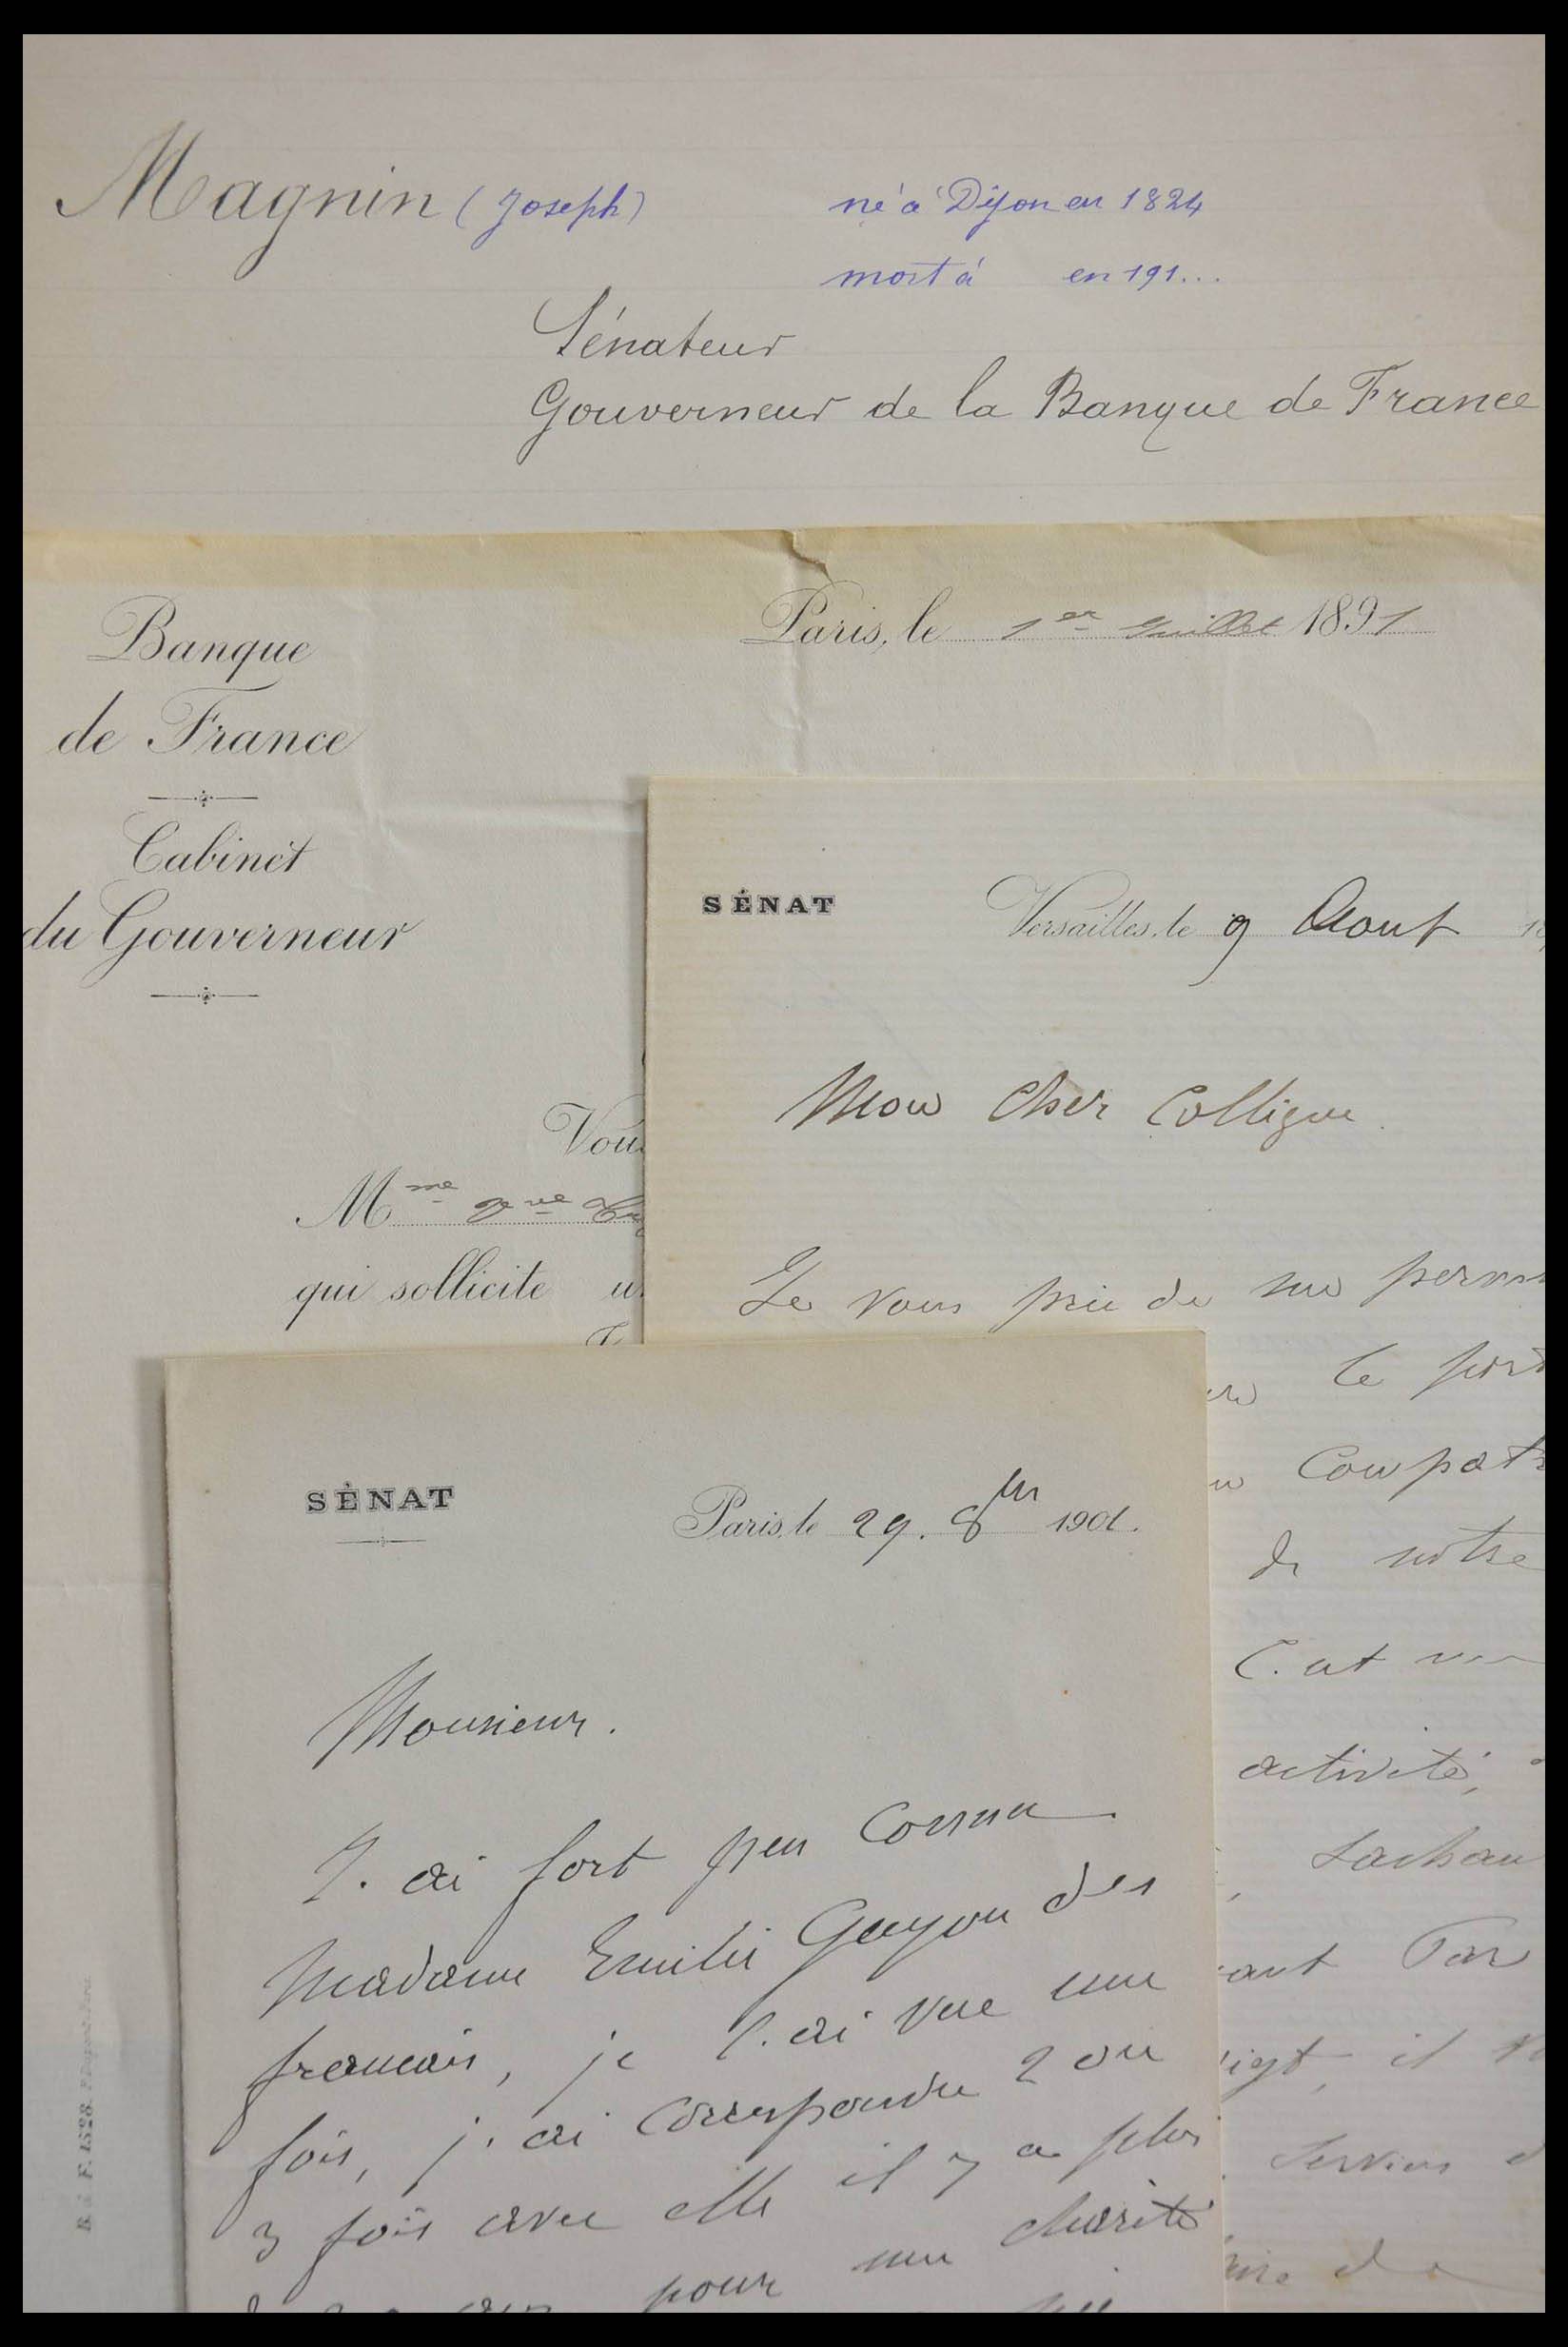 Magnin (Joseph) né à Dijon en 1824
mort à en 191...
Sénateur
Gouverneur de la Banque de France
Banque
de France
Cabinet
du Gouverneur
Paris, le 1er Juillet 1891
Vou
Mme Vve
qui sollicite
SÉNAT
Versailles, le 9 Aout 18
Mon Cher Collègue
Je vous prie de me
le
de notre
activité,
Sachan
ant Par
il
SÉNAT
Paris, le 29. 8bre 1901.
Monsieur.
J. ai fort peu Connu
Madame Emilie Guyon des
francais, je l. ai vue une
fois, j. ai Correspondu 2 ou
3 fois avec elle il y a plus
pour une charité
B. d. F. 1328.